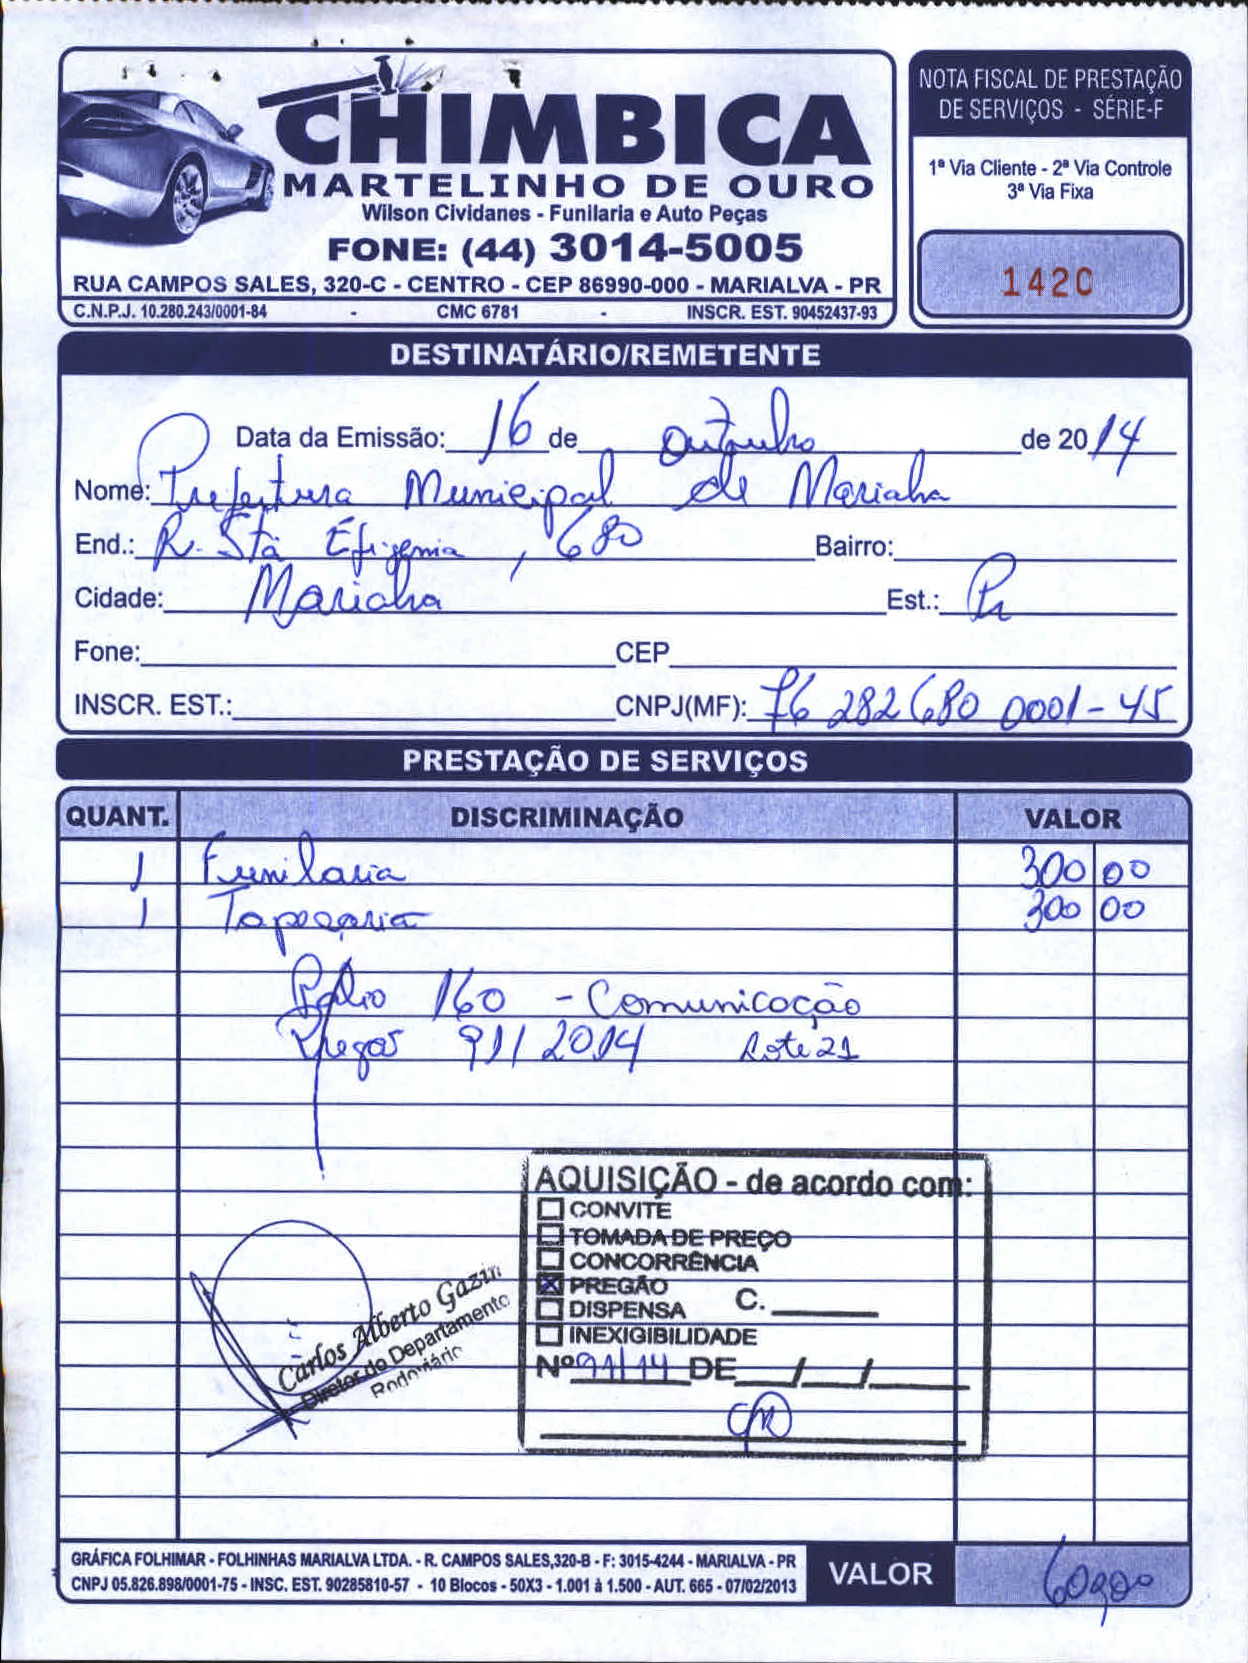 CHIMBICA
MARTELINHO DE OURO
Wilson Cividanes - Funilaria e Auto Peças
FONE: (44) 3014-5005
RUA CAMPOS SALES, 320-C - CENTRO - CEP 86990-000 - MARIALVA - PR
C.N.P.J. 10.280.243/0001-84 - CMC 6781 - INSCR. EST. 90452437-93
NOTA FISCAL DE PRESTAÇÃO
DE SERVIÇOS - SÉRIE-F
1ª Via Cliente - 2ª Via Controle
3ª Via Fixa
1420
DESTINATÁRIO/REMETENTE
Data da Emissão: 16 de Outubro de 2014
Nome: Prefeitura Municipal de Marialva
End.: R. Stã Efigenia, 680 Bairro:
Cidade: Marialva Est.: Pr
Fone: CEP
INSCR. EST.: CNPJ(MF): 76 282 680 0001-45
PRESTAÇÃO DE SERVIÇOS
QUANT. DISCRIMINAÇÃO VALOR
1 Funilaria 300 00
1 Tapeçaria 300 00
Palio 160 - Comunicação
Pregão 91/2014 Lote 21
AQUISIÇÃO - de acordo com:
CONVITE
TOMADA DE PREÇO
CONCORRÊNCIA
PREGÃO
DISPENSA C.
INEXIGIBILIDADE
Nº 91/14 DE / /
Carlos Alberto Gazin
Diretor do Departamento
Rodoviário
GRÁFICA FOLHIMAR - FOLHINHAS MARIALVA LTDA. - R. CAMPOS SALES,320-B - F: 3015-4244 - MARIALVA - PR
CNPJ 05.826.898/0001-75 - INSC. EST. 90285810-57 - 10 Blocos - 50X3 - 1.001 à 1.500 - AUT. 665 - 07/02/2013
VALOR 600,00